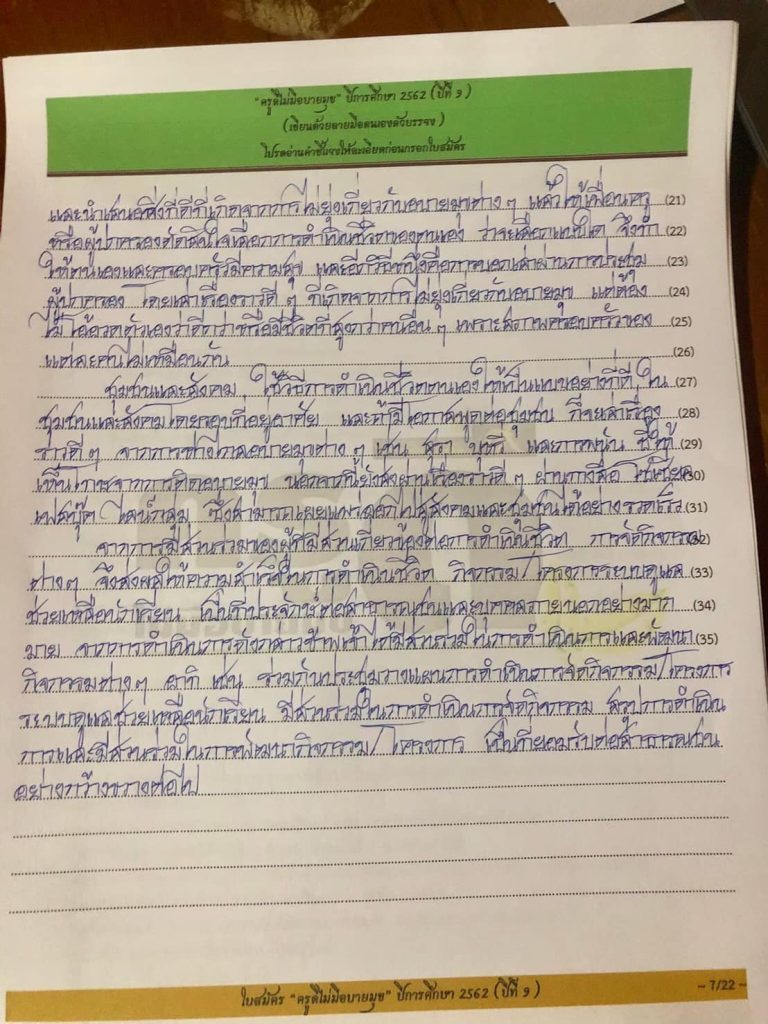 "ครูดีไม่มีอบายมุข" ปีการศึกษา 2562 (ปีที่ 9)
(เขียนด้วยลายมือตนเองตัวบรรจง)
โปรดอ่านคำชี้แจงให้ละเอียดก่อนกรอกใบสมัคร
และนำเสนอสิ่งที่ดีที่เกิดจากการไม่ยุ่งเกี่ยวกับอบายมุขต่าง ๆ แล้วให้เพื่อนครู (21)
หรือผู้ปกครองตัดสินใจเลือกการดำเนินชีวิตของตนเอง ว่าจะเลือกแบบใด จึงทำ (22)
ให้ตนเองและครอบครัวมีความสุข และอีกวิธีหนึ่งคือการบอกเล่าผ่านการประชุม (23)
ผู้ปกครอง โดยเล่าเรื่องราวดี ๆ ที่เกิดจากการไม่ยุ่งเกี่ยวกับอบายมุข แต่ต้อง (24)
ไม่โอ้อวดตัวเองว่าดีกว่าหรือมีชีวิตที่สูงกว่าคนอื่น ๆ เพราะสภาพครอบครัวของ (25)
แต่ละคนไม่เหมือนกัน (26)
ชุมชนและสังคม ใช้วิธีการดำเนินชีวิตตนเองให้เป็นแบบอย่างที่ดี ใน (27)
ชุมชนและสังคมโดยรอบที่อยู่อาศัย และถ้ามีโอกาสพูดต่อชุมชน ก็จะเล่าเรื่อง (28)
ราวดี ๆ จากการห่างไกลอบายมุขต่าง ๆ เช่น สุรา บุหรี่ และการพนัน ชี้ให้ (29)
เห็นโทษจากการติดอบายมุข นอกจากนี้ยังส่งผ่านเรื่องราวดี ๆ ผ่านทางสื่อโซเชียล (30)
เฟสบุ๊ค ไลน์กลุ่ม ซึ่งสามารถเผยแพร่ออกไปสู่สังคมและชุมชนได้อย่างรวดเร็ว (31)
จากการมีส่วนร่วมของผู้ที่มีส่วนเกี่ยวข้องต่อการดำเนินชีวิต การจัดกิจกรรม (32)
ต่าง ๆ จึงส่งผลให้ความสำเร็จในการดำเนินชีวิต กิจกรรม/โครงการระบบดูแล (33)
ช่วยเหลือนักเรียน เป็นที่ประจักษ์ต่อสาธารณชนและบุคคลภายนอกอย่างมาก (34)
มาย จากการดำเนินการดังกล่าวข้าพเจ้าได้มีส่วนร่วมในการดำเนินการและพัฒนา (35)
กิจกรรมต่าง ๆ อาทิ เช่น ร่วมกันประชุมวางแผนการดำเนินการจัดกิจกรรม/โครงการ
ระบบดูแลช่วยเหลือนักเรียน มีส่วนร่วมในการดำเนินการจัดกิจกรรม สรุปการดำเนิน
การและมีส่วนร่วมในการพัฒนากิจกรรม/โครงการ เป็นที่ยอมรับต่อสาธารณชน
อย่างกว้างขวางต่อไป
ใบสมัคร "ครูดีไม่มีอบายมุข" ปีการศึกษา 2562 (ปีที่ 9)
~ 7/22 ~